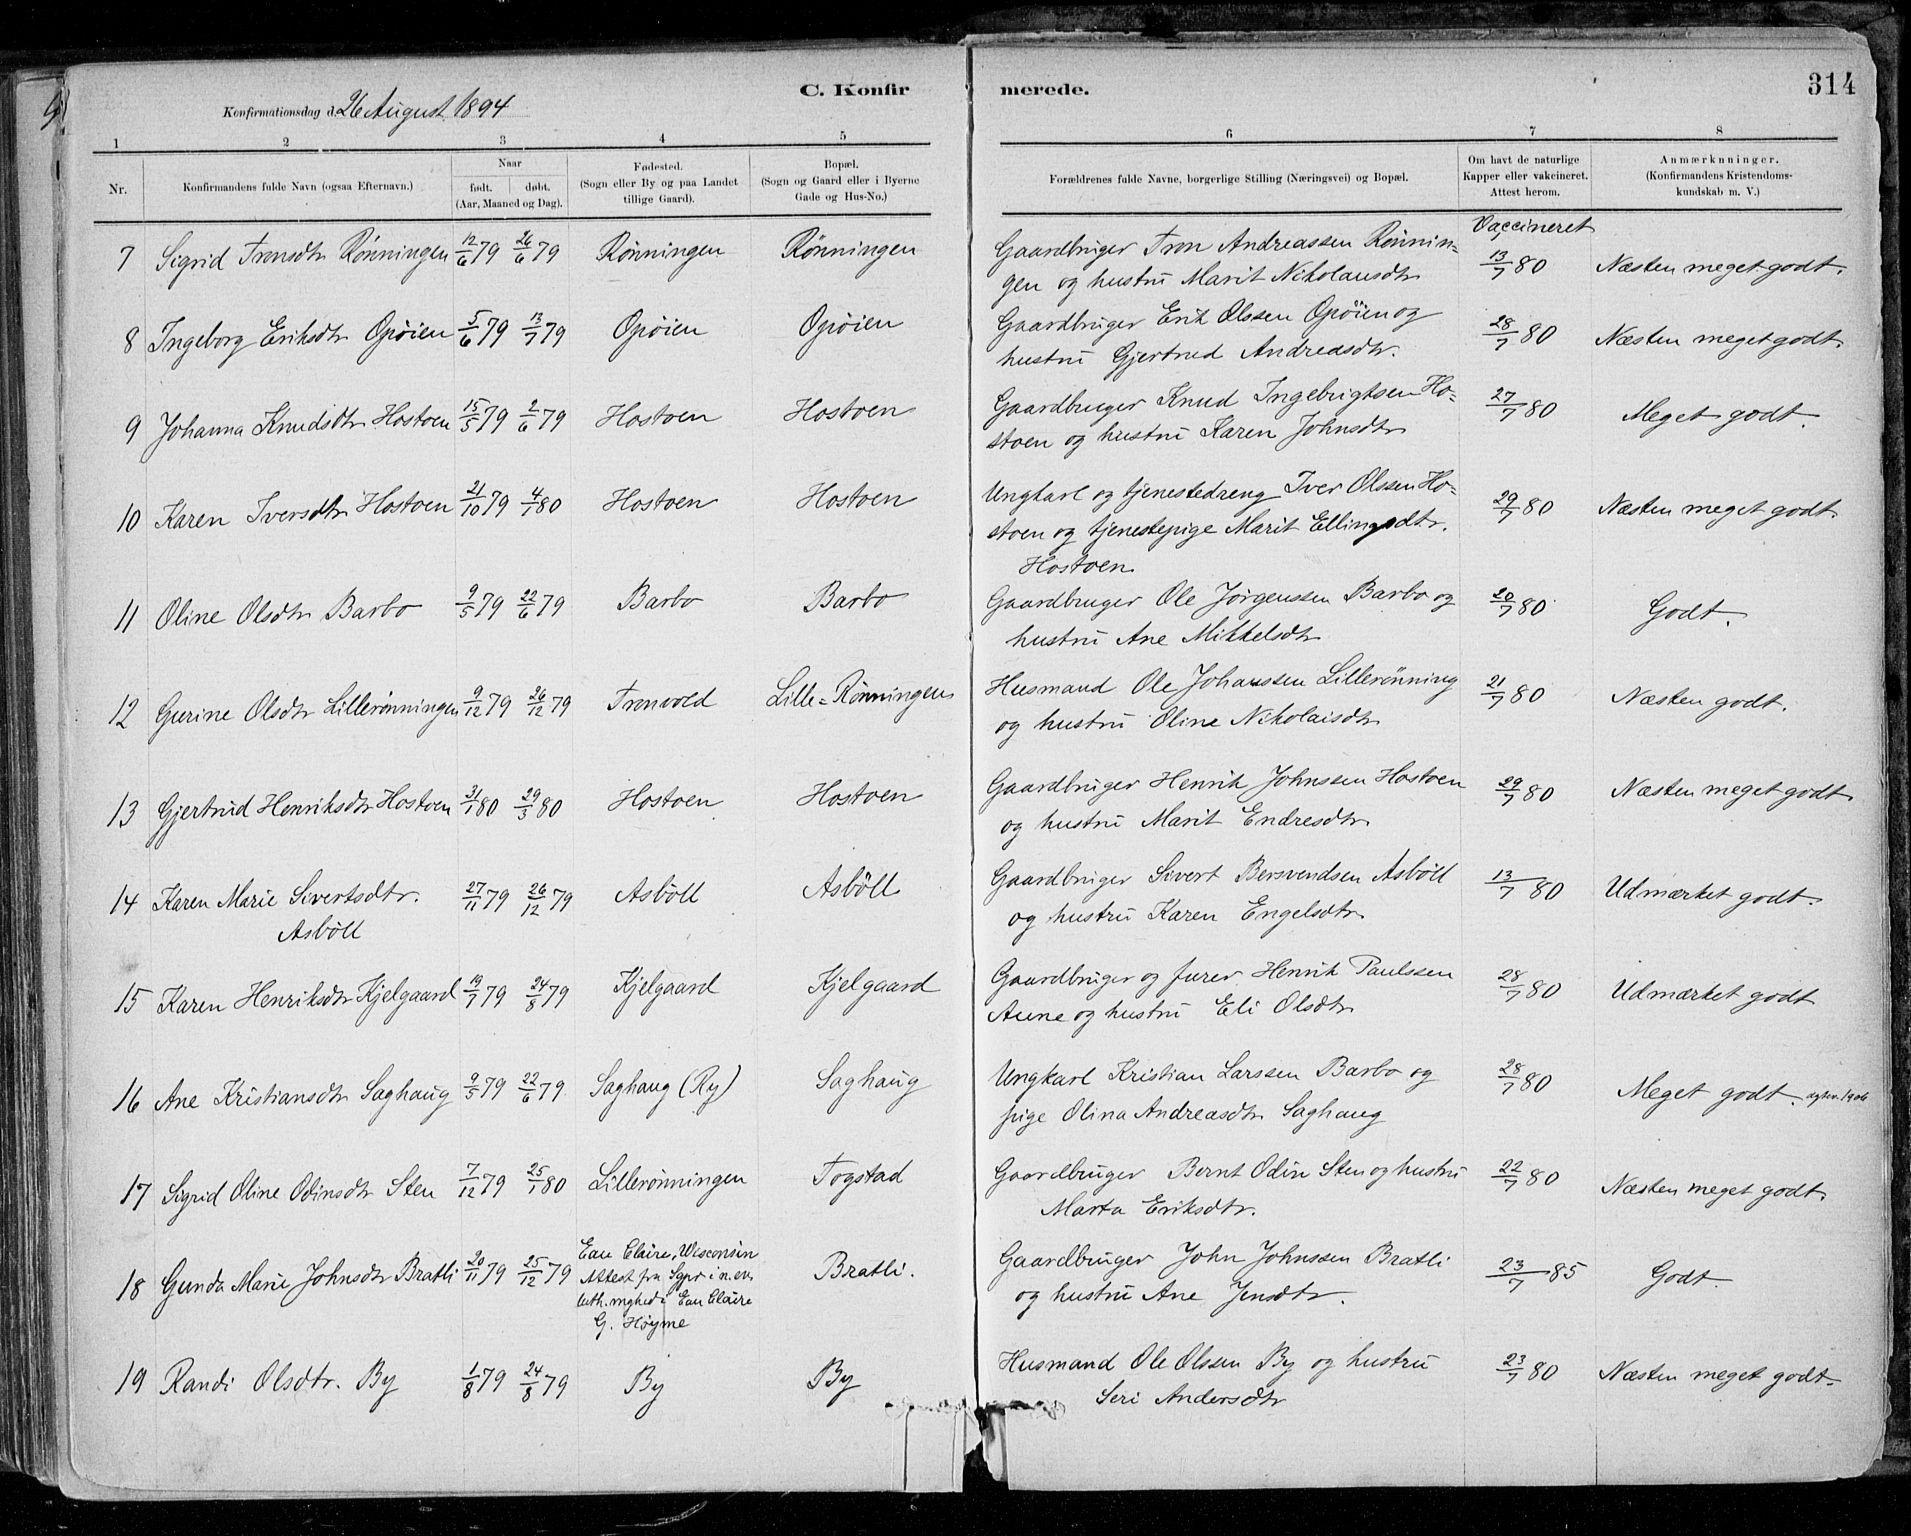 C. Konfirmerede.
314
Konfirmationsdag d. 26 August 1894
1 2 3 4 5 6 7 8
Nr.
Konfirmandens fulde Navn (ogsaa Efternavn.)
Naar
født. døbt.
(Aar, Maaned og Dag).
Fødested.
(Sogn eller By og paa Landet
tillige Gaard).
Bopæl.
(Sogn og Gaard eller i Byerne
Gade og Hus-No.)
Forældrenes fulde Navne, borgerlige Stilling (Næringsvei) og Bopæl.
Om havt de naturlige
Kapper eller vakcineret.
Attest herom.
Anmærknninger.
(Konfirmandens Kristendoms-
kundskab m. V.)
Vaccineret
7 Sigrid Tronsdtr Rönningen 12/6 79 26/6 79 Rönningen Rönningen Gaardbruger Tron Andreassen Rönnin- 13/7 80 Næsten meget godt.
gen og hustru Marit Nikolausdtr
8 Ingeborg Eriksdtr Opöien 5/6 79 13/7 79 Opöien Opöien Gaardbruger Erik Olssen Opöien og 28/7 80 Næsten meget godt.
hustru Gjertrud Andreasdtr.
9 Johanna Knudsdtr Hostoen 15/5 79 2/6 79 Hostoen Hostoen Gaardbruger Knud Ingebrigtsen Ho- 27/7 80 Meget godt.
stoen og hustru Karen Johnsdtr
10 Karen Iversdtr Hostoen 21/10 79 4/1 80 Hostoen Hostoen Ungkarl og tjenestedreng Iver Olssen Ho- 29/7 80 Næsten meget godt.
stoen og tjenestepige Marit Ellingsdtr.
Hostoen
11 Oline Olsdtr Barbo 9/5 79 22/6 79 Barbo Barbo Gaardbruger Ole Jörgenssen Barbo og 20/7 80 Godt.
hustru Ane Mikkelsdtr
12 Gurine Olsdtr Lillerönningen 9/12 79 26/12 79 Tronvold Lille-Rönningen Husmand Ole Johanssen Lillerönning 21/7 80 Næsten godt.
og hustru Oline Nikolaisdtr
13 Gjertrud Henriksdtr Hostoen 31/1 80 29/3 80 Hostoen Hostoen Gaardbruger Henrik Johnssen Hostoen 29/7 80 Næsten meget godt
og hustru Marit Endresdtr.
14 Karen Marie Sivertsdtr. 27/11 79 26/12 79 Asböll Asböll Gaardbruger Sivert Bersvendsen Asböll 13/7 80 Udmærket godt.
Asböll
og hustru Karen Engelsdtr.
15 Karen Henriksdtr Kjelgaard 19/7 79 24/8 79 Kjelgaard Kjelgaard Gaardbruger og furer Henrik Paulssen 28/7 80 Udmærket godt
Aune og hustru Eli Olsdtr
16 Ane Kristiansdtr Saghaug 9/5 79 22/6 79 Saghaug (Ry) Saghaug Ungkarl Kristian Larssen Barbo og 28/7 80 Meget godt.
pige Olina Andreasdtr Saghaug
17 Sigrid Oline Odinsdtr Sten 7/12 79 25/1 80 Lillerönningen Togstad Gaardbruger Bernt Odin Sten og hustru 22/7 80 Næsten meget godt.
Marta Eriksdtr.
18 Gunda Marie Johnsdtr Bratli 20/11 79 25/12 79 Eau Claire, Wisconsin Bratli. Gaardbruger John Johnssen Bratli 23/7 85 Godt.
Attest fra Sgpr i n. ev.
luth. mghed i Eau Claire
G. Höyme
og hustru Ane Jensdtr.
19 Randi Olsdtr. By 1/8 79 24/8 79 By By Husmand Ole Olssen By og hustru 23/7 80 Næsten meget godt.
Seri Andersdtr